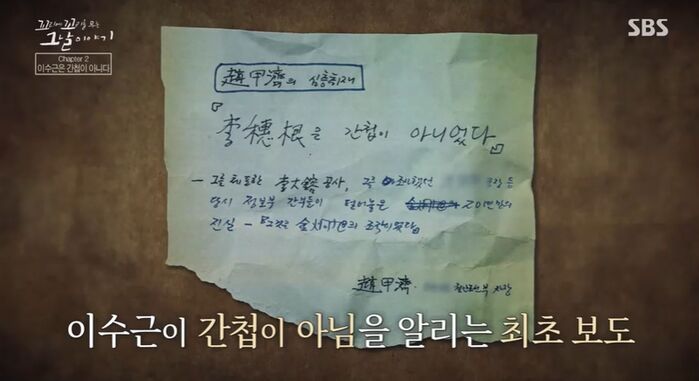 꼬리에 꼬리를 무는
그날 이야기
Chapter 2
이수근은 간첩이 아니다
SBS
趙甲濟의 심층취재
『李穗根은 간첩이 아니었다』
— 그를 체포한 李大鎔 공사, 그를 조사했던
당시 정보부 간부들이 털어놓은 20년만의
진실 — 그것은 金 의 조작이었다
趙甲濟
이수근이 간첩이 아님을 알리는 최초 보도